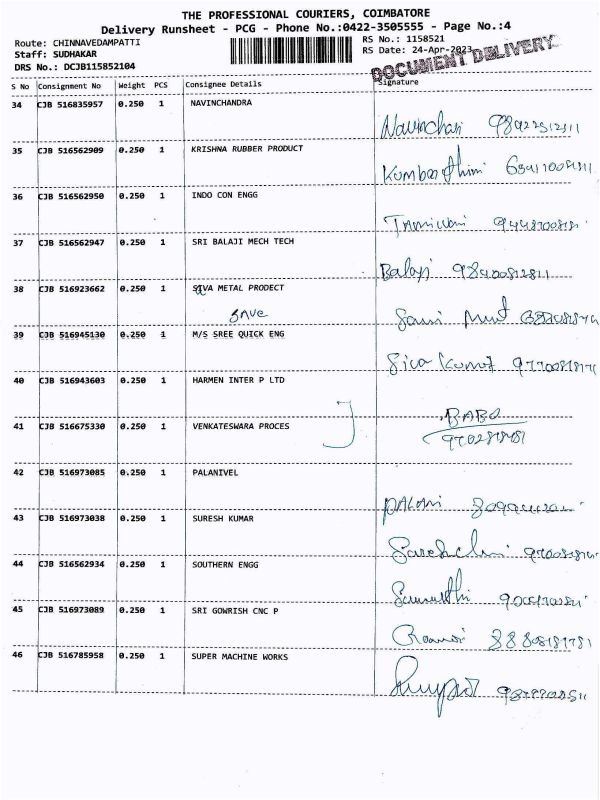 THE PROFESSIONAL COURIERS, COIMBATORE
Delivery Runsheet - PCG - Phone No.:0422-3505555 - Page No.:4
Route: CHINNAVEDAMPATTI RS No.: 1158521
Staff: SUDHAKAR RS Date: 24-Apr-2023
DRS No.: DCJB115852104
DOCUMENT DELIVERY
S No Consignment No Weight PCS Consignee Details Signature
34 CJB 516835957 0.250 1 NAVINCHANDRA
Navinchan
35 CJB 516562909 0.250 1 KRISHNA RUBBER PRODUCT
36 CJB 516562950 0.250 1 INDO CON ENGG
37 CJB 516562947 0.250 1 SRI BALAJI MECH TECH
Balaji 98400812811
38 CJB 516923662 0.250 1 SIVA METAL PRODECT
39 CJB 516945130 0.250 1 M/S SREE QUICK ENG
Siva Kumar
40 CJB 516943603 0.250 1 HARMEN INTER P LTD
BABO
41 CJB 516675330 0.250 1 VENKATESWARA PROCES
42 CJB 516973085 0.250 1 PALANIVEL
PALANI
43 CJB 516973038 0.250 1 SURESH KUMAR
44 CJB 516562934 0.250 1 SOUTHERN ENGG
45 CJB 516973089 0.250 1 SRI GOWRISH CNC P
46 CJB 516785958 0.250 1 SUPER MACHINE WORKS